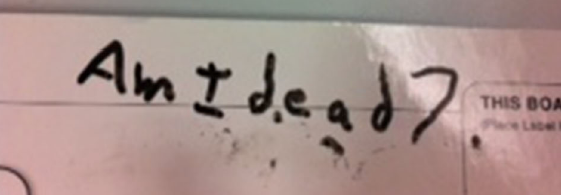 Am I dead?
THIS BOA
(Place Label